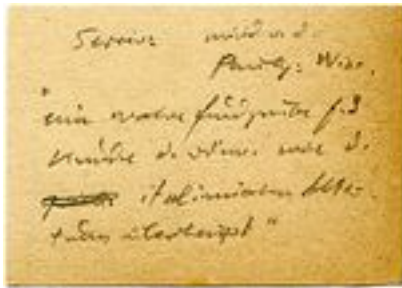 Servius wird v. d.
Pauly-Wiss.
"eine wahre Fundgrube f. d
Kunde d. röm. wie d.
italienischen Alter-
tums überhaupt"